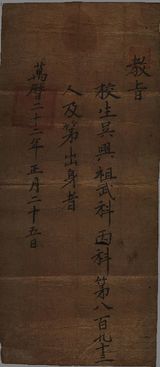 教旨
校生吳興祖武科丙科第八百九十三
人及第出身者
萬曆二十二年正月二十五日